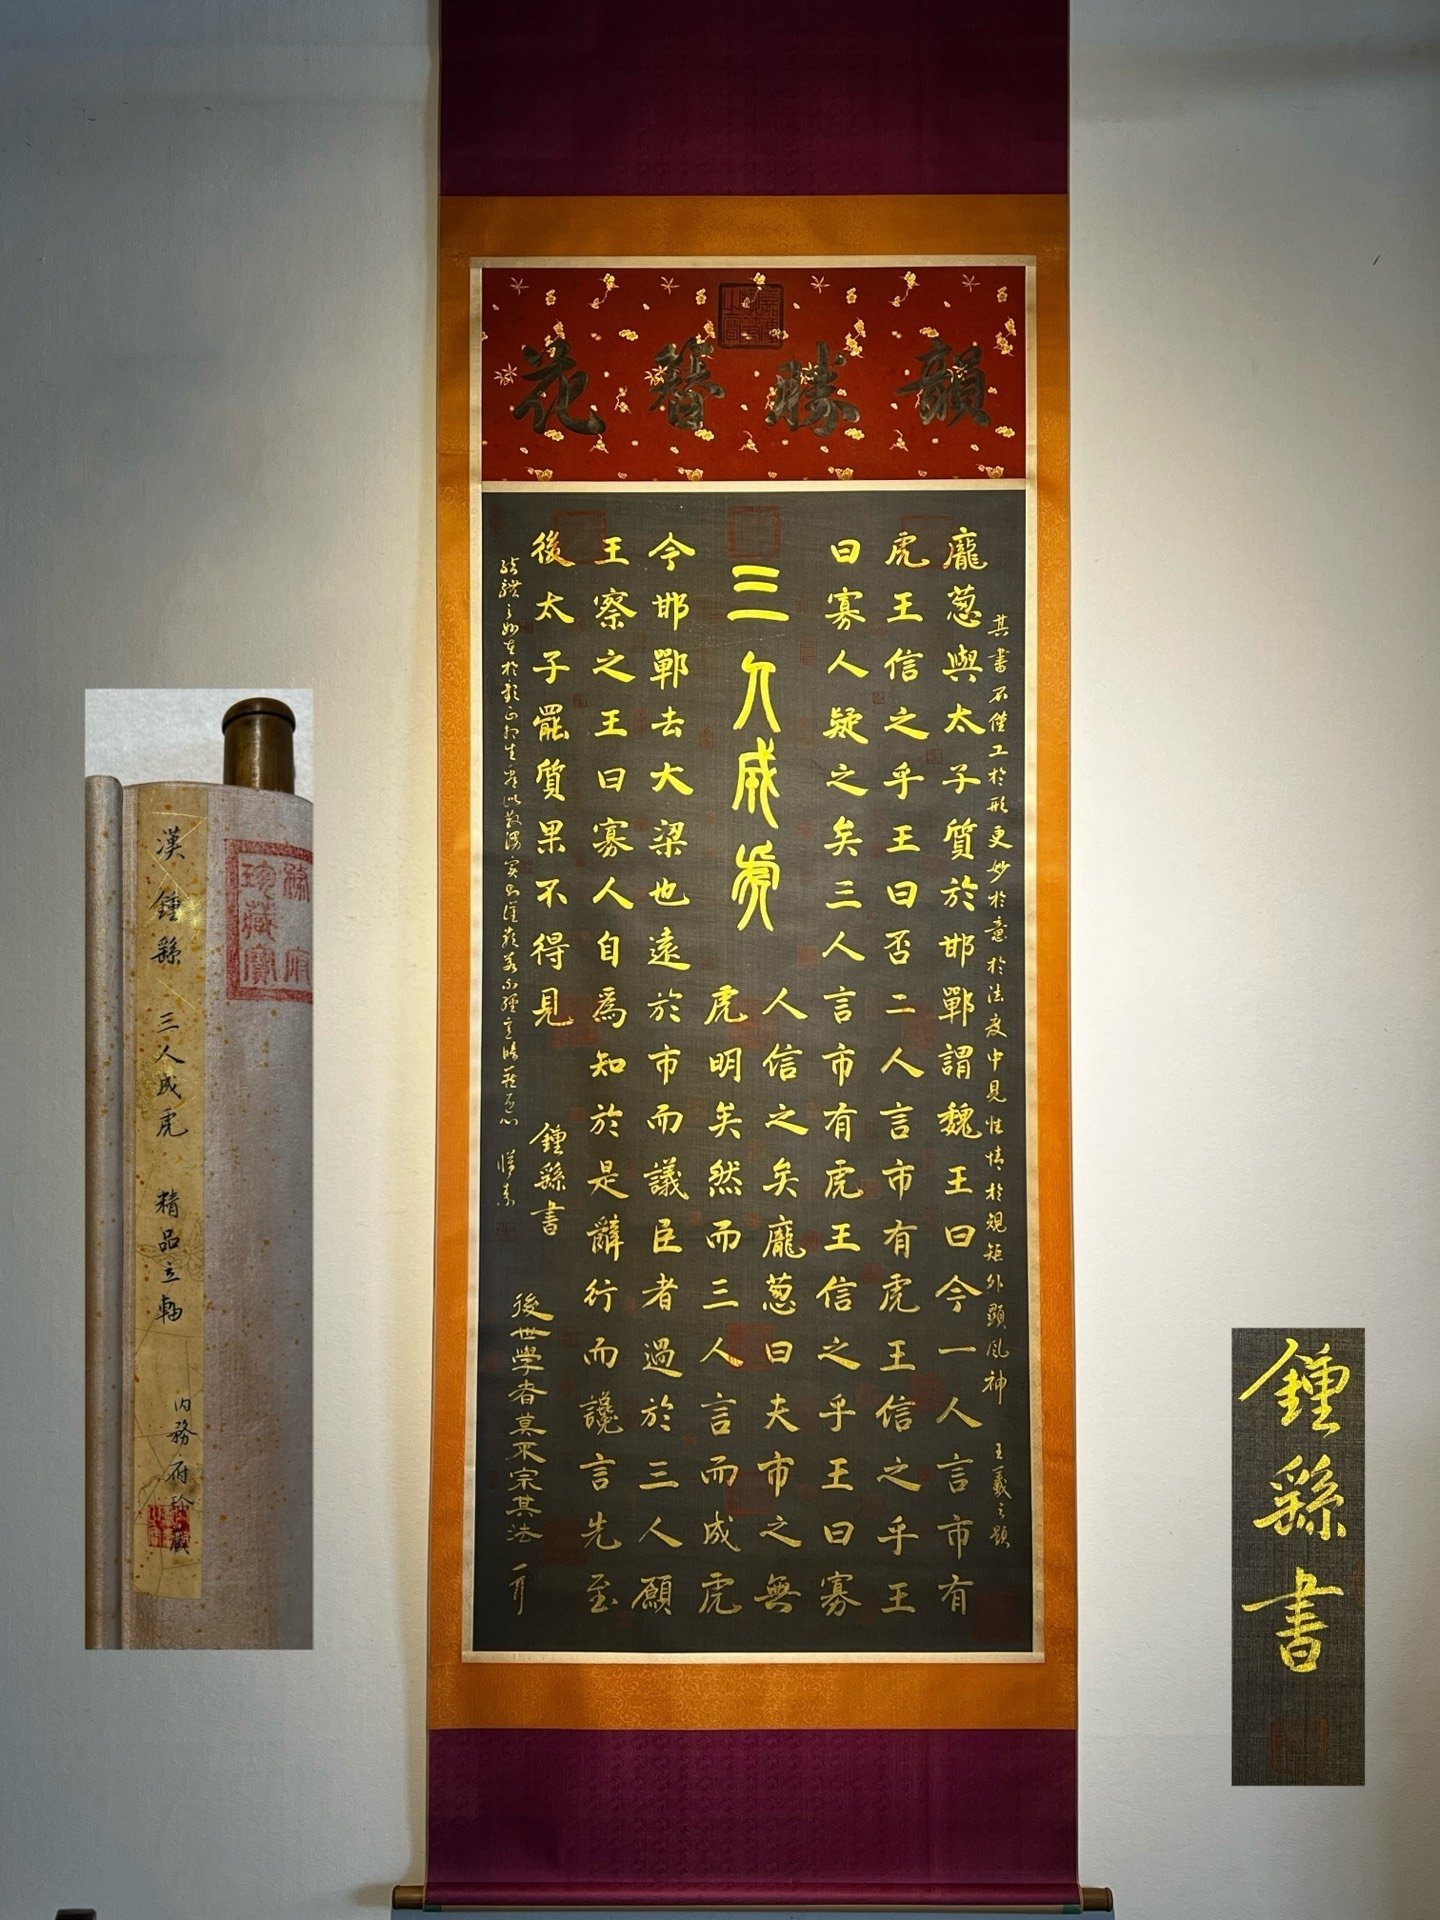 韻勝簪花
其書不僅工於形更妙於意於法度中見性情於規矩外顯風神 王羲之題
龐蔥與太子質於邯鄲謂魏王曰今一人言市有
虎王信之乎王曰否二人言市有虎王信之乎王
曰寡人疑之矣三人言市有虎王信之乎王曰寡
三人成虎
人信之矣龐蔥曰夫市之無
虎明矣然而三人言而成虎
今邯鄲去大梁也遠於市而議臣者過於三人願
王察之王曰寡人自為知於是辭行而讒言先至
後太子罷質果不得見
鍾繇書
後世學者莫不宗其法
懷素
漢 鍾繇 三人成虎 精品立軸 內務府珍藏
珍藏寶
鍾繇書